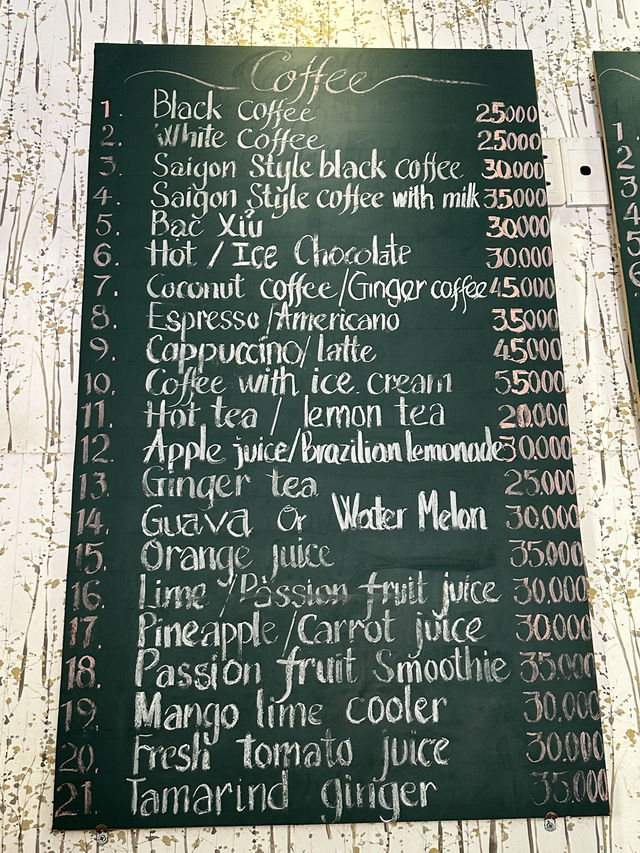 Coffee
1. Black coffee 25000
2. White Coffee 25000
3. Saigon Style black coffee 30.000
4. Saigon Style coffee with milk 35.000
5. Bạc Xỉu 30.000
6. Hot / Ice Chocolate 30.000
7. Coconut coffee/Ginger coffee 45.000
8. Espresso/Americano 35.000
9. Cappuccino/latte 45000
10. Coffee with ice cream 55000
11. Hot tea / lemon tea 20.000
12. Apple juice/Brazilian lemonade 30.000
13. Ginger tea 25.000
14. Guava Or Water Melon 30.000
15. Orange juice 35.000
16. Lime /Passion fruit juice 30.000
17. Pineapple/Carrot juice 30.000
18. Passion fruit Smoothie 35.000
19. Mango lime cooler 30.000
20. Fresh tomato juice 30.000
21. Tamarind ginger 35.000
1.
2
3
4
5
6